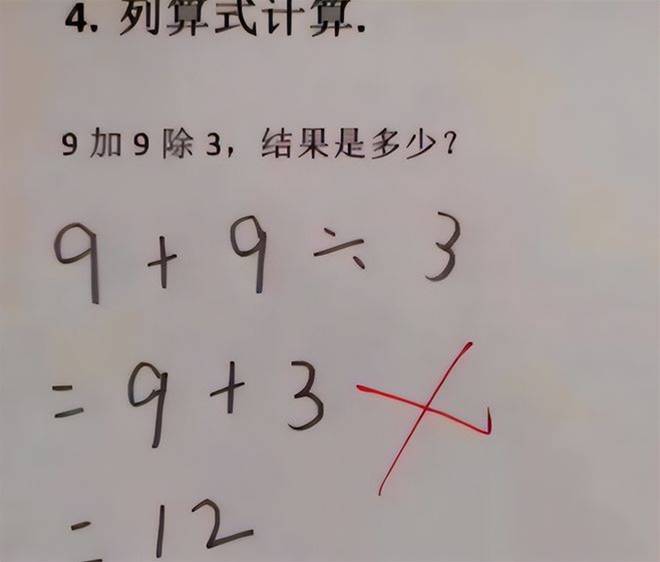 4. 列算式计算.
9 加 9 除 3，结果是多少？
9 + 9 ÷ 3
= 9 + 3
= 12